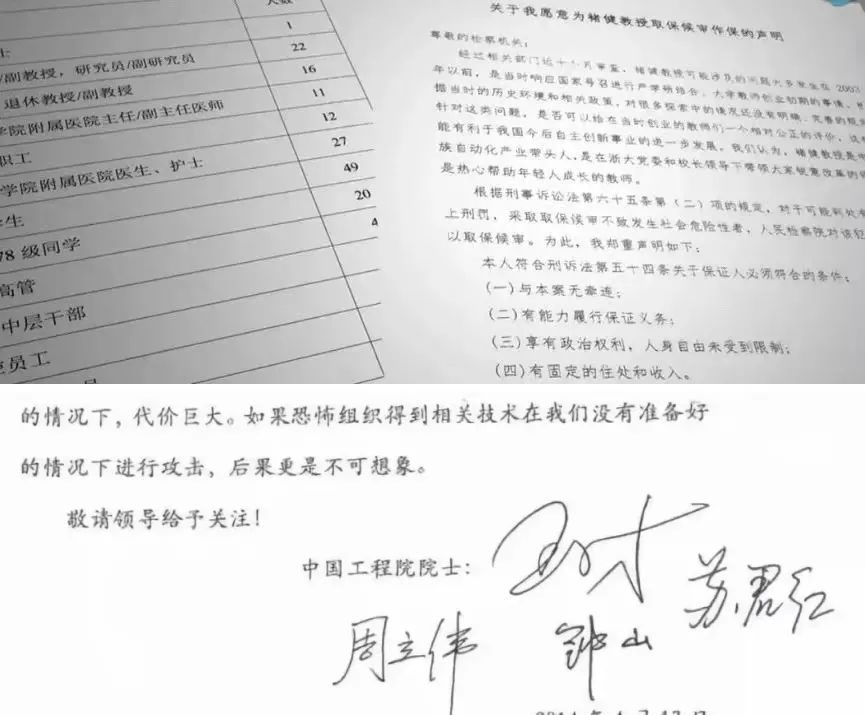 人数
士
1
/副教授，研究员/副研究员
22
退休教授/副教授
16
学院附属医院主任/副主任医师
11
职工
12
学院附属医院医生、护士
27
学生
49
78 级同学
20
高管
4
中层干部
员工
关于我愿意为褚健教授取保候审作保的声明
尊敬的检察机关：
经过相关部门近十个月审查，褚健教授可能涉及的问题大多发生在 2003
年以前，是当时响应国家号召进行产学研结合、大学教师创业初期的事情，
据当时的历史环境和相关政策，对很多探索中的情况还没有明确、完善的规
针对这类问题，是否可以给在当时创业的教师们一个相对公正的评价，这
能有利于我国今后自主创新事业的进一步发展。我们认为，褚健教授是
族自动化产业带头人，是在浙大党委和校长领导下带领大家锐意改革的
是热心帮助年轻人成长的教师。
根据刑事诉讼法第六十五条第（二）项的规定，对于可能判处有
上刑罚，采取取保候审不致发生社会危险性者，人民检察院对该犯
以取保候审。为此，我郑重声明如下：
本人符合刑诉法第五十四条关于保证人必须符合的条件：
(一)与本案无牵连；
(二)有能力履行保证义务；
(三)享有政治权利，人身自由未受到限制；
(四)有固定的住处和收入。
的情况下，代价巨大。如果恐怖组织得到相关技术在我们没有准备好
的情况下进行攻击，后果更是不可想象。
敬请领导给予关注！
中国工程院院士：
苏君红
周立伟 钟山